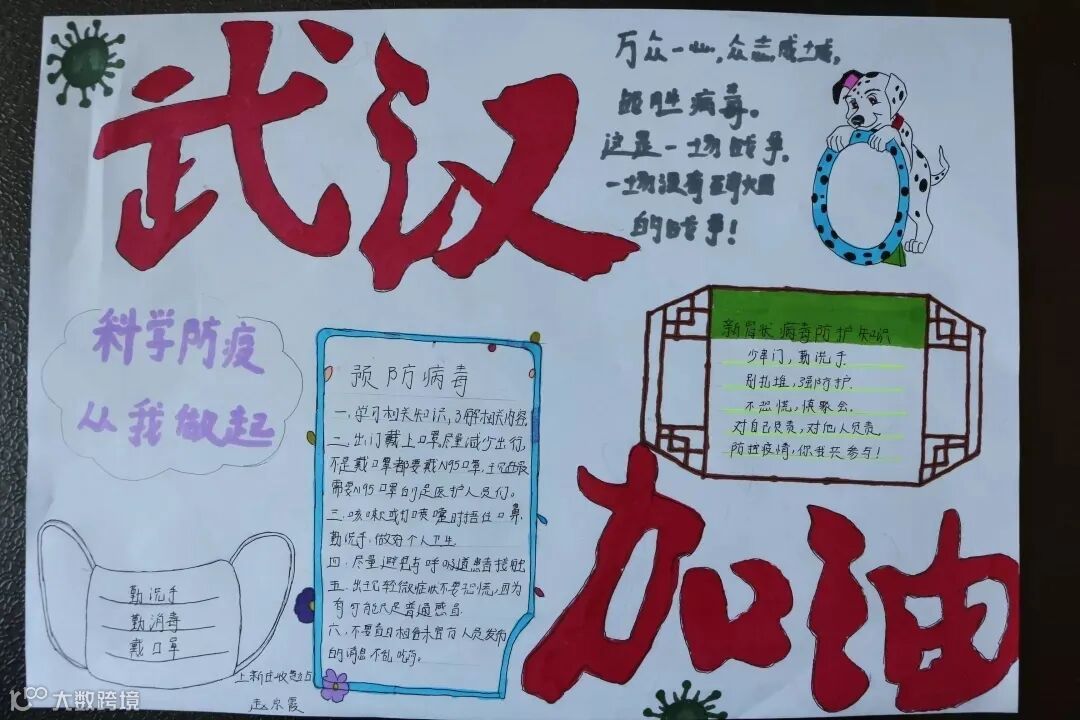 武汉
万众一心,众志成城,
战胜病毒。
这是一场战争,
一场没有硝烟
的战争!
科学防疫
从我做起
预防病毒
一、学习相关知识,了解相关内容。
二、出门戴上口罩尽量减少出行,
不是戴口罩都要戴N95口罩,
需要N95口罩的是医护人员们。
三、咳嗽或打喷嚏时捂住口鼻
勤洗手,做好个人卫生
四、尽量避免与呼吸道患者接触
五、出现轻微症状不要恐慌,因为
有可能只是普通感冒
六、不要盲目相信未官方人员发布
的消息不乱吃药。
新冠状病毒防护知识
少串门,勤洗手
别扎堆,强防护.
不恐慌,慎聚会.
对自己负责,对他人负责
防控疫情,你我共参与!
加油
勤洗手
勤消毒
戴口罩
上新庄收费站
赵永霞
大数跨境